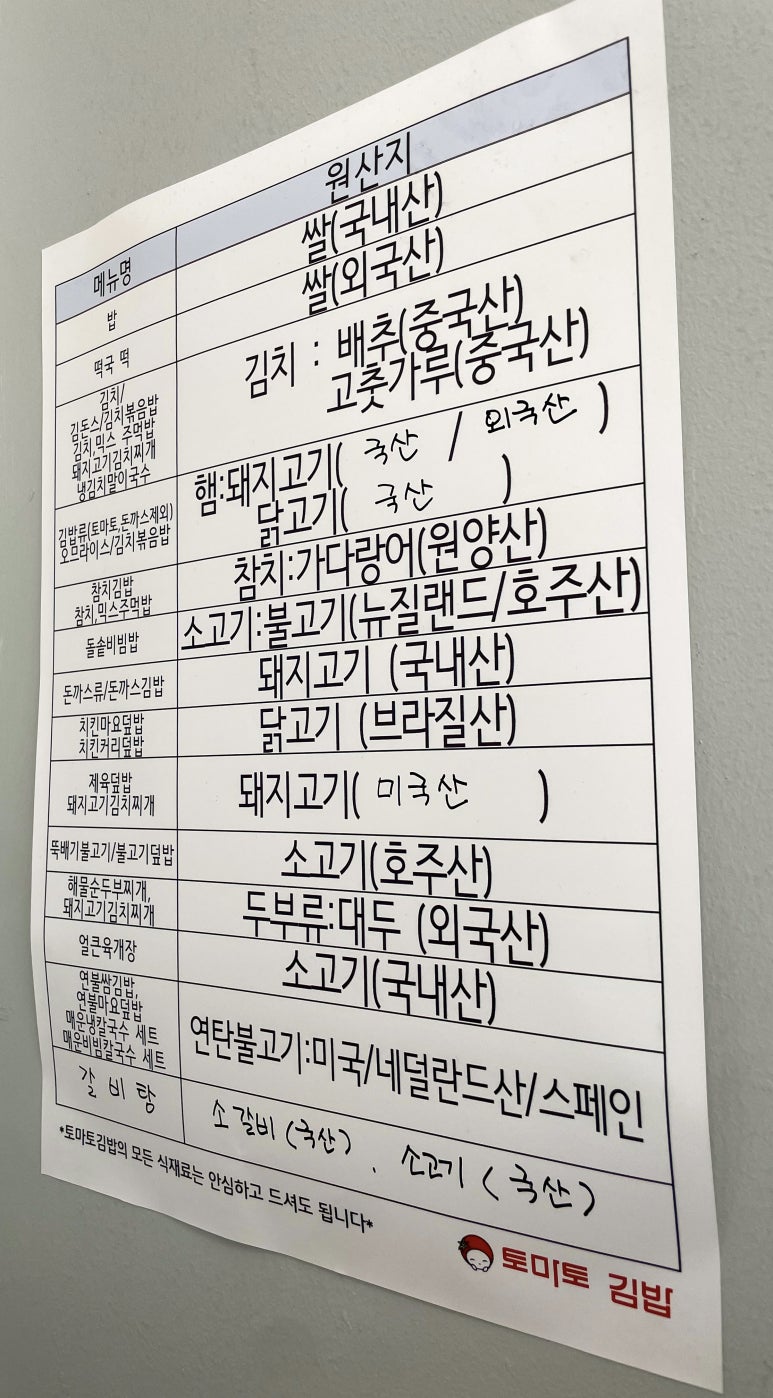 메뉴명
원산지
밥
쌀(국내산)
떡국 떡
쌀(외국산)
김치/
김돈스/김치볶음밥
김치,믹스 주먹밥
돼지고기김치찌개
냉김치말이국수
김치 : 배추(중국산)
고춧가루(중국산)
김밥류(토마토,돈까스제외)
오므라이스/김치볶음밥
햄:돼지고기( 국산 / 외국산 )
닭고기( 국산 )
참치김밥
참치,믹스주먹밥
참치:가다랑어(원양산)
돌솥비빔밥
소고기:불고기(뉴질랜드/호주산)
돈까스류/돈까스김밥
돼지고기 (국내산)
치킨마요덮밥
치킨커리덮밥
닭고기 (브라질산)
제육덮밥
돼지고기김치찌개
돼지고기( 미국산 )
뚝배기불고기/불고기덮밥
소고기(호주산)
해물순두부찌개,
돼지고기김치찌개
두부류:대두 (외국산)
얼큰육개장
소고기(국내산)
연불쌈김밥,
연불마요덮밥
매운냉칼국수 세트
매운비빔칼국수 세트
연탄불고기:미국/네덜란드산/스페인
갈비탕
소갈비(국산) . 소고기(국산)
*토마토김밥의 모든 식재료는 안심하고 드셔도 됩니다*
토마토 김밥